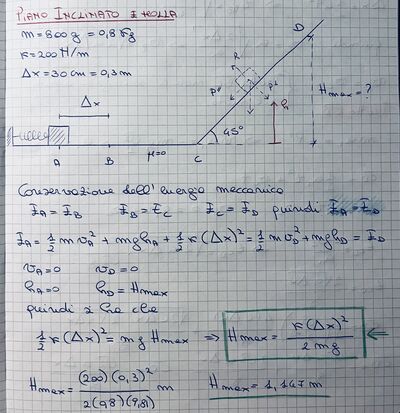 PIANO INCLINATO E MOLLA
m = 800 g = 0,8 Kg
K = 200 N/m
Δx = 30 cm = 0,3 m
Δx
A B μ=0 C
45°
R
P'' P⊥
h
D
Hmax = ?
Conservazione dell'energia meccanica
EA = EB EB = EC EC = ED quindi EA = ED
EA = 1/2 m vA² + mghA + 1/2 K (Δx)² = 1/2 m vD² + mghD = ED
vA = 0 vD = 0
hA = 0 hD = Hmax
quindi si ha che
1/2 K(Δx)² = mg Hmax ⇒ Hmax = K(Δx)² / 2mg ⇐
Hmax = (200)(0,3)² / 2(0,8)(9,81) m Hmax = 1,147 m